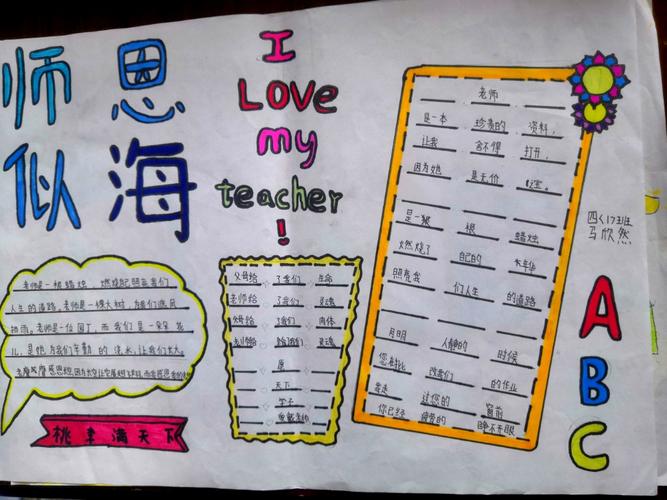 师恩
似海
I
LOVE
my
teacher
!
老师是一根蜡烛 燃烧自己照亮我们
人生的道路,老师是一棵大树,为我们遮风
挡雨,老师是一位园丁,而我们是一朵花
儿,是他为我们辛勤的浇水,让我们长大。
桃李满天下
父母给 了我们 生命
老师给 了我们 灵魂
父母给 了我们 肉体
老师给 了我们 灵魂
愿
天下
学子
老师
是一本 珍贵的 资料,
让我 舍不得 打开,
因为她 是无价 之宝。
是一根 根 蜡烛
燃烧了 自己的 年华
照亮我 们人生 的道路
月明 人静的 时候
您都批 改我们 的作业
走 过您的 窗前
您已经 疲惫的 睁不开眼
四(17)班
马欣然
A
B
C